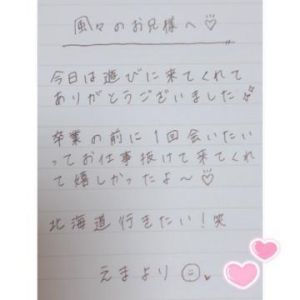 風々のお兄様へ♡
今日は遊びに来てくれて
ありがとうございました
卒業の前に1回会いたい
ってお仕事抜けて来てくれ
て嬉しかったよ〜♡
北海道行きたい!笑
えまより